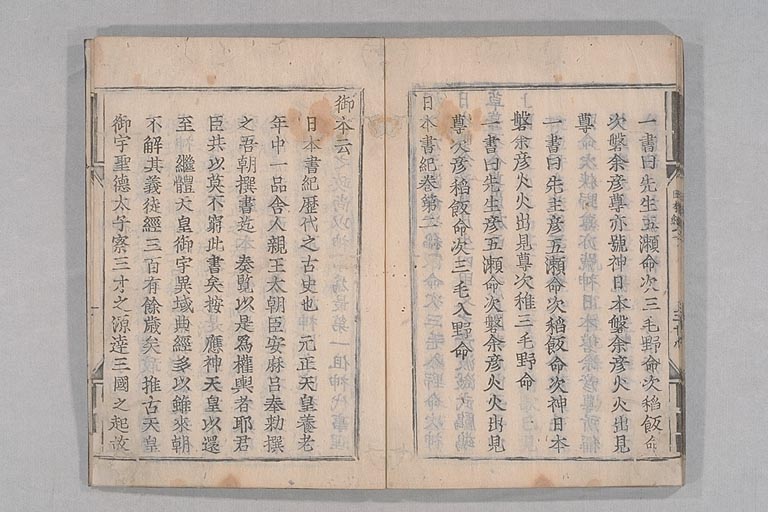 一書曰先生五瀬命次三毛野命次稻飯命
次磐余彦尊亦號神日本磐余彦火火出見
尊
一書曰先生彦五瀬命次稻飯命次神日本
磐余彦火火出見尊次稚三毛野命
一書曰先生彦五瀬命次磐余彦火火出見
尊次彦稻飯命次三毛入野命
日本書紀卷第二
御本云
日本書紀歷代之古史也 元正天皇養老
年中一品舍人親王太朝臣安麻呂奉勅撰
之吾朝撰書迄 奏覽以是爲權輿者耶君
臣共以莫不窮此書矣按 應神天皇以還
至 繼體天皇御宇異域典經多以雖來朝
不解其義徒經三百有餘歳矣 推古天皇
御宇聖德太子察三才之源達三國之起故